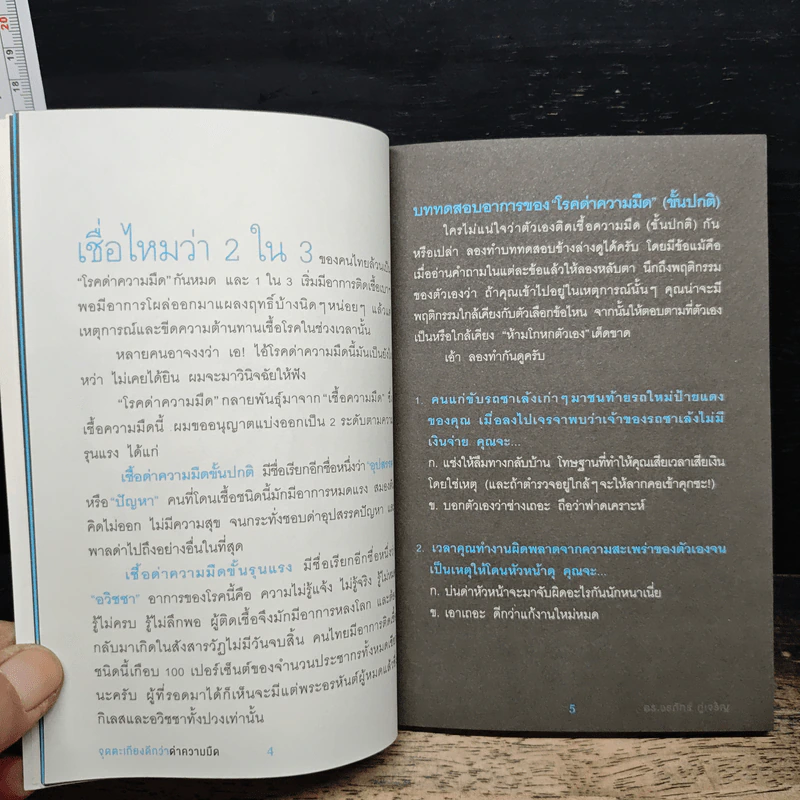 20
19
18
เชื่อไหมว่า 2 ใน 3 ของคนไทยล้วนเป็น
"โรคด่าความมืด" กันหมด และ 1 ใน 3 เริ่มมีอาการติดเชื้อเบาๆ
พอมีอาการโผล่ออกมาแผลงฤทธิ์บ้างนิดๆ หน่อยๆ แล้วแต่
เหตุการณ์และขีดความต้านทานเชื้อโรคในช่วงเวลานั้น
หลายคนอาจงงว่า เอ! ไอ้โรคด่าความมืดนี้มันเป็นยังไง
หว่า ไม่เคยได้ยิน ผมจะมาวินิจฉัยให้ฟัง
"โรคด่าความมืด" กลายพันธุ์มาจาก "เชื้อความมืด"
เชื้อความมืดนี้ ผมขออนุญาตแบ่งออกเป็น 2 ระดับตามความ
รุนแรง ได้แก่
เชื้อด่าความมืดขั้นปกติ มีชื่อเรียกอีกชื่อหนึ่งว่า "อุปสรรค"
หรือ "ปัญหา" คนที่โดนเชื้อชนิดนี้มักมีอาการหมดแรง สมอง
คิดไม่ออก ไม่มีความสุข จนกระทั่งชอบด่าอุปสรรคปัญหา
พาลด่าไปถึงอย่างอื่นในที่สุด
เชื้อด่าความมืดขั้นรุนแรง มีชื่อเรียกอีกชื่อหนึ่งว่า
"อวิชชา" อาการของโรคนี้คือ ความไม่รู้แจ้ง ไม่รู้จริง รู้ไม่หมด
รู้ไม่ครบ รู้ไม่ลึกพอ ผู้ติดเชื้อจึงมักมีอาการหลงโลก และ
กลับมาเกิดในสังสารวัฏไม่มีวันจบสิ้น คนไทยมีอาการติดเชื้อ
ชนิดนี้เกือบ 100 เปอร์เซ็นต์ของจำนวนประชากรทั้งหมด
นะครับ ผู้ที่รอดมาได้ก็เห็นจะมีแต่พระอรหันต์ผู้หมดแล้วซึ่ง
กิเลสและอวิชชาทั้งปวงเท่านั้น
จุดตะเกียงดีกว่าด่าความมืด 4
บททดสอบอาการของ "โรคด่าความมืด" (ขั้นปกติ)
ใครไม่แน่ใจว่าตัวเองติดเชื้อความมืด (ขั้นปกติ) กัน
หรือเปล่า ลองทำบททดสอบข้างล่างดูได้ครับ โดยมีข้อแม้คือ
เมื่ออ่านคำถามในแต่ละข้อแล้วให้ลองหลับตา นึกถึงพฤติกรรม
ของตัวเองว่า ถ้าคุณเข้าไปอยู่ในเหตุการณ์นั้นๆ คุณน่าจะมี
พฤติกรรมใกล้เคียงกับตัวเลือกข้อไหน จากนั้นให้ตอบตามที่ตัวเอง
เป็นหรือใกล้เคียง "ห้ามโกหกตัวเอง" เด็ดขาด
เอ้า ลองทำกันดูครับ
1. คนแก่ขับรถซาเล้งเก่าๆ มาชนท้ายรถใหม่ป้ายแดง
ของคุณ เมื่อลงไปเจรจาพบว่าเจ้าของรถซาเล้งไม่มี
เงินจ่าย คุณจะ...
ก. แช่งให้ลืมทางกลับบ้าน โทษฐานที่ทำให้คุณเสียเวลาเสียเงิน
โดยใช่เหตุ (และถ้าตำรวจอยู่ใกล้ๆ จะให้ลากคอเข้าคุกซะ!)
ข. บอกตัวเองว่าช่างเถอะ ถือว่าฟาดเคราะห์
2. เวลาคุณทำงานผิดพลาดจากความสะเพร่าของตัวเองจน
เป็นเหตุให้โดนหัวหน้าดุ คุณจะ...
ก. บ่นด่าหัวหน้าจะมาจับผิดอะไรกันนักหนาเนี่ย
ข. เอาเถอะ ดีกว่าแก้งานใหม่หมด
5